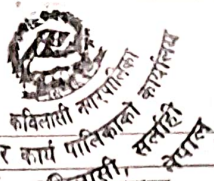 कविलासी नगरपालिका
र कार्य पालिकाको कार्यालय
सर्लाही
नेपाल